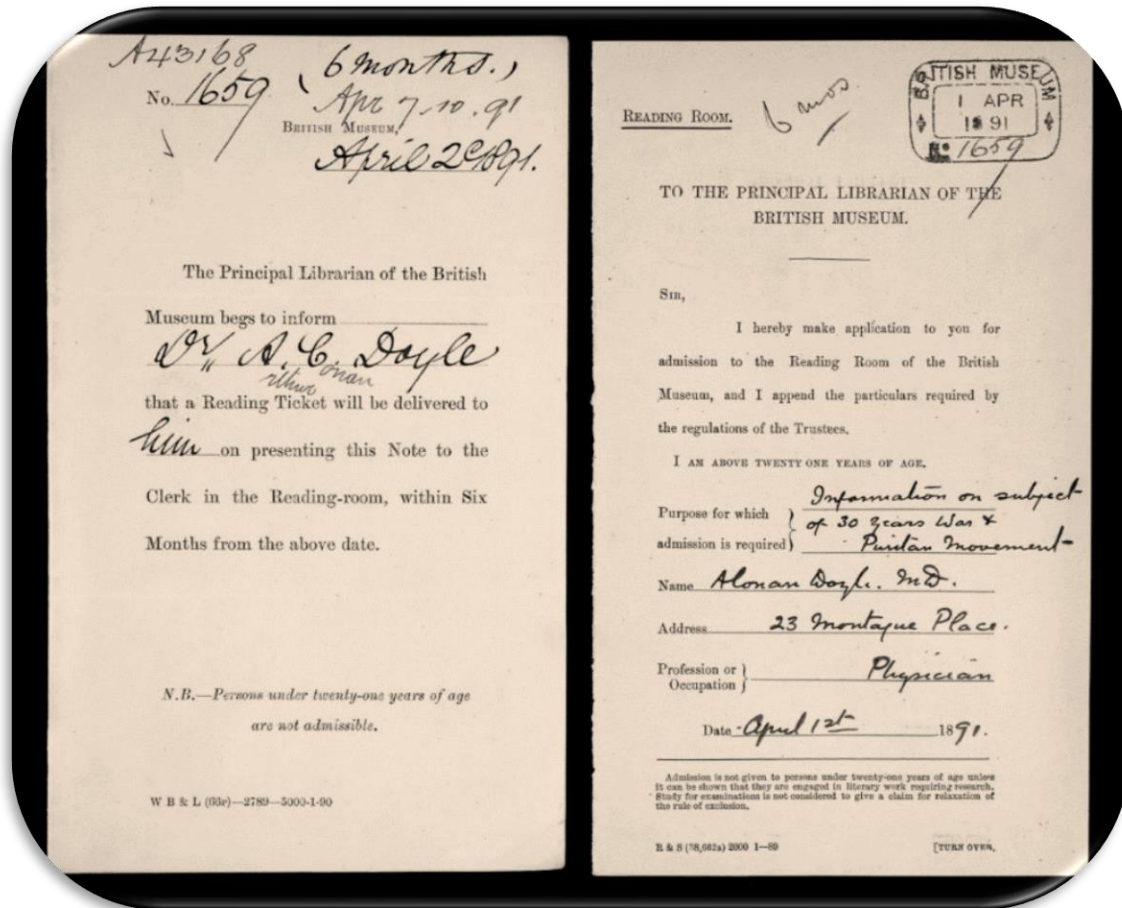 A43168
(6 months.)
No. 1659
Apr 7.10.91
BRITISH MUSEUM,
April 2 1891.
The Principal Librarian of the British
Museum begs to inform
Dr. A. C. Doyle
rthur onan
that a Reading Ticket will be delivered to
him on presenting this Note to the
Clerk in the Reading-room, within Six
Months from the above date.
N.B.—Persons under twenty-one years of age
are not admissible.
W B & L (66r)—2789—5000-1-90
READING ROOM.
6 mos.
BRITISH MUSEUM
1 APR
1891
No. 1659
TO THE PRINCIPAL LIBRARIAN OF THE
BRITISH MUSEUM.
SIR,
I hereby make application to you for
admission to the Reading Room of the British
Museum, and I append the particulars required by
the regulations of the Trustees.
I AM ABOVE TWENTY ONE YEARS OF AGE.
Information on subject
Purpose for which
of 30 years War &
admission is required
Puritan Movement
Name AConan Doyle. M.D.
Address 23 Montague Place.
Profession or
Physician
Occupation
Date April 1st 1891.
Admission is not given to persons under twenty-one years of age unless
it can be shown that they are engaged in literary work requiring research.
Study for examinations is not considered to give a claim for relaxation of
the rule of exclusion.
B & S (38,662a) 2000 1—89
[TURN OVER.